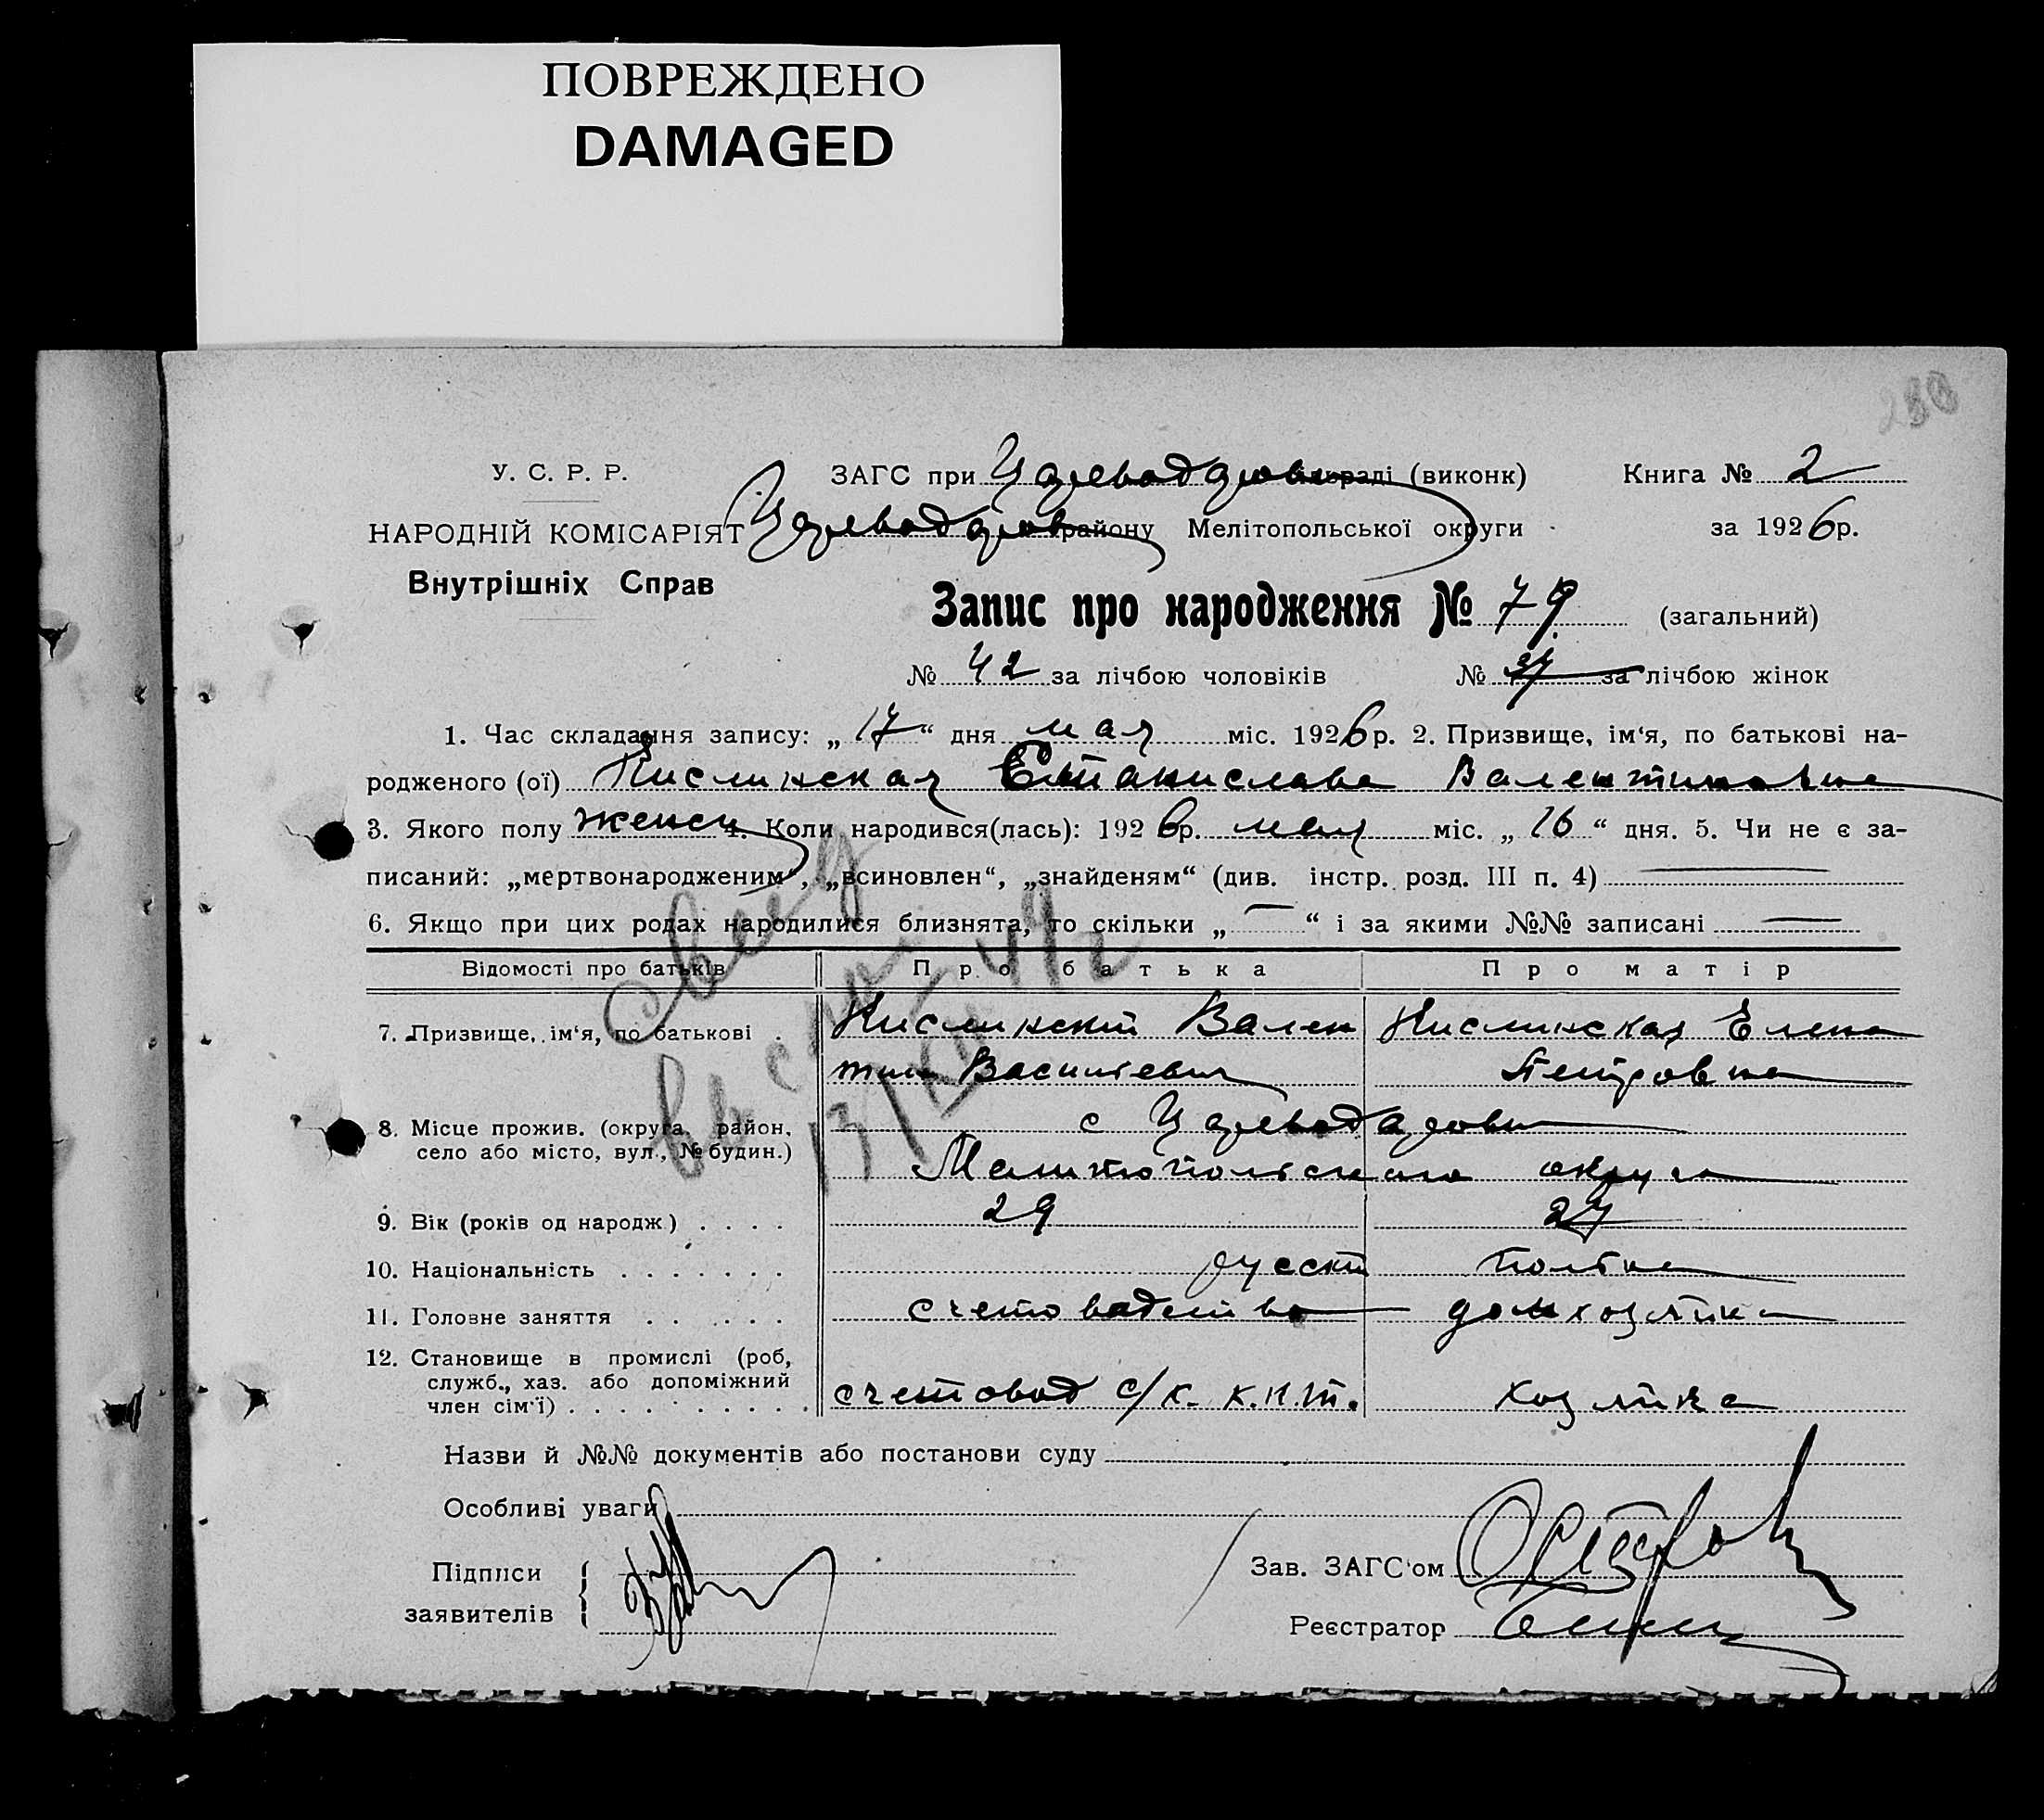 ПОВРЕЖДЕНО
DAMAGED
280
У. С. Р. Р.
ЗАГС при Цареводаров (виконк)
Книга № 2
НАРОДНІЙ КОМІСАРІЯТ
району Мелітопольської округи
за 1926 р.
Внутрішніх Справ
Запис про народження № 79 (загальний)
№ 42 за лічбою чоловіків № 37 за лічбою жінок
1. Час складання запису: „17“ дня мая міс. 1926 р. 2. Призвище, ім‘я, по батькові на-
родженого (ої) Кислинская Станислава Валентиновна
3. Якого полу женск 4. Коли народився(лась): 1926 р. мая міс. „16“ дня. 5. Чи не є за-
писаний: „мертвонародженим“, „всиновлен“, „знайденям“ (див. інстр. розд. III п. 4)
6. Якщо при цих родах народилися близнята, то скільки „—“ і за якими №№ записані —
Відомості про батьків
Про батька
Про матір
7. Призвище, ім‘я, по батькові
Кислинский Вален
тин Васильевич
Кислинская Елена
Петровна
8. Місце прожив. (округа, район,
село або місто, вул., № будин.)
Мелитопольского округа
9. Вік (років од народж.)
29
27
10. Національність
русский
полька
11. Головне заняття
счетоводство
домхозяйка
12. Становище в промислі (роб,
служб., хаз. або допоміжний
член сім‘ї)
счетовод с/к. к.н.т.
хозяйка
Назви й №№ документів або постанови суду
Особливі уваги
Підписи
заявителів
Зав. ЗАГС‘ом
Реєстратор